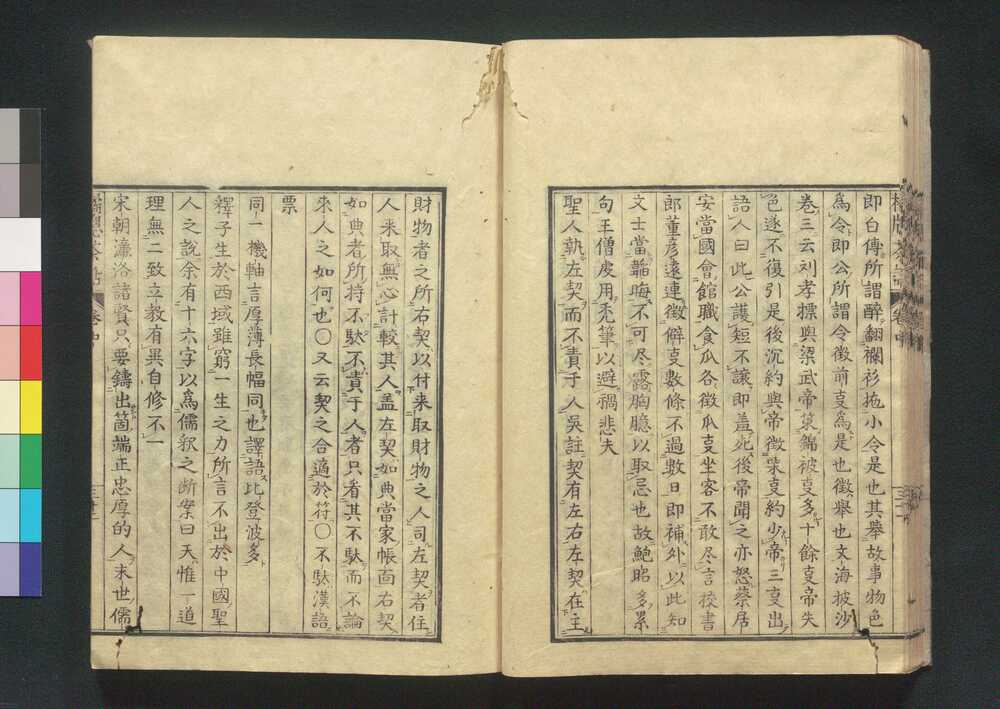 即白傳所謂醉翻襴衫抛小令是也其擧故事物色
爲令即公所謂令徵前叓爲是也徵擧也文海披沙
卷三云刘孝標與梁武帝策錦被叓多十餘叓帝失
色遂不復引是後沉約與帝徵栗叓約少帝三叓出
語人曰此公護短不讓即羞死後帝聞之亦怒蔡居
安當國會館職食瓜各徵瓜叓坐客不敢尽言校書
郎董彦遠連徵僻叓數條不過數日即補外以此知
文士當韜晦不可尽露胸臆以取忌也故鮑昭多累
句王僧虔用禿筆以避禍悲夫
聖人執左契而不責于人吳註契有左右左契在主
財物者之所右契以付来取財物之人司左契者任
人来取無心計較其人盖左契如典當家帳靣右契
如典者所持不駄不責于人者只看其不駄而不論
来人之如何也〇又云契之合適於符〇不駄漢語
票
同一機軸言厚薄長幅同也譯語比登波多
釋子生於西域雖窮一生之力所言不出於中國聖
人之說余有十六字以爲儒釈之断案曰天惟一道
理無二致立教有異自修不一
宋朝濂洛諸賢只要鑄出箇端正忠厚的人末世儒
茶話
卷中